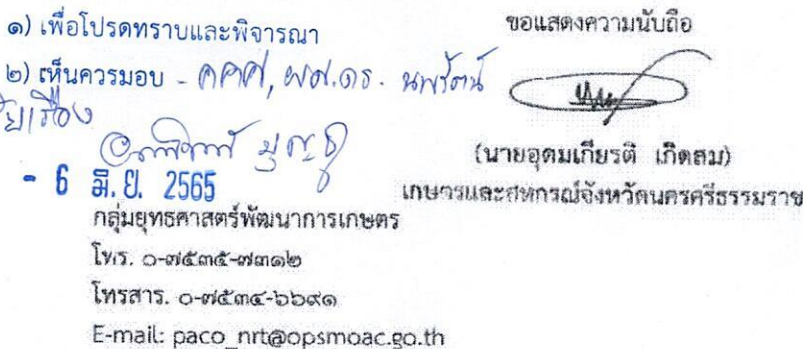 ๑) เพื่อโปรดทราบและพิจารณา
๒) เห็นควรมอบ - คคศ, ผศ.ดร. นพรัตน์
- 6 มิ.ย. 2565
ขอแสดงความนับถือ
(นายอุดมเกียรติ เกิดสม)
เกษตรและสหกรณ์จังหวัดนครศรีธรรมราช
กลุ่มยุทธศาสตร์พัฒนาการเกษตร
โทร. ๐-๗๕๓๕-๗๓๑๒
โทรสาร. ๐-๗๕๓๔-๖๖๙๑
E-mail: paco_nrt@opsmoac.go.th